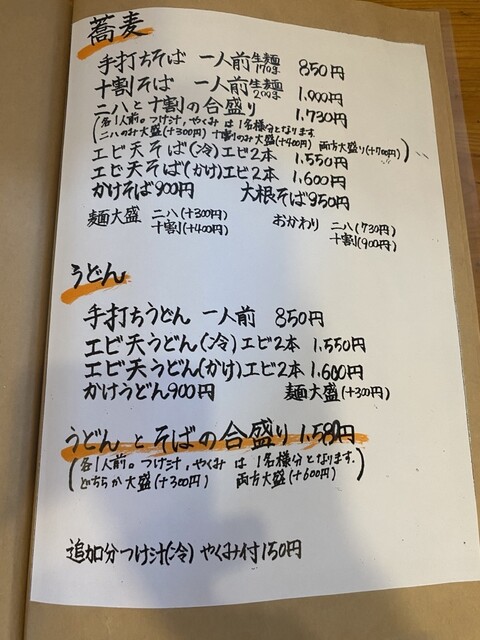 蕎麦
手打ちそば 一人前 生麺170g 850円
十割そば 一人前 生麺200g 1.000円
二八と十割の合盛り 1.730円
(各1人前。つけ汁、やくみ は 1名様分となります。
二八のみ大盛(+300円) 十割のみ大盛(+400円) 両方大盛り(+700円))
エビ天そば(冷)エビ2本 1.550円
エビ天そば(かけ)エビ2本 1.600円
かけそば900円 大根そば950円
麺大盛 二八(+300円) おかわり 二八(730円)
十割(+400円) 十割(900円)
うどん
手打ちうどん 一人前 850円
エビ天うどん(冷)エビ2本 1.550円
エビ天うどん(かけ)エビ2本 1.600円
かけうどん900円 麺大盛(+300円)
うどん と そばの合盛り 1.580円
(各1人前。つけ汁、やくみ は 1名様分となります。
どちらか大盛(+300円) 両方大盛(+600円))
追加分つけ汁(冷) やくみ付150円